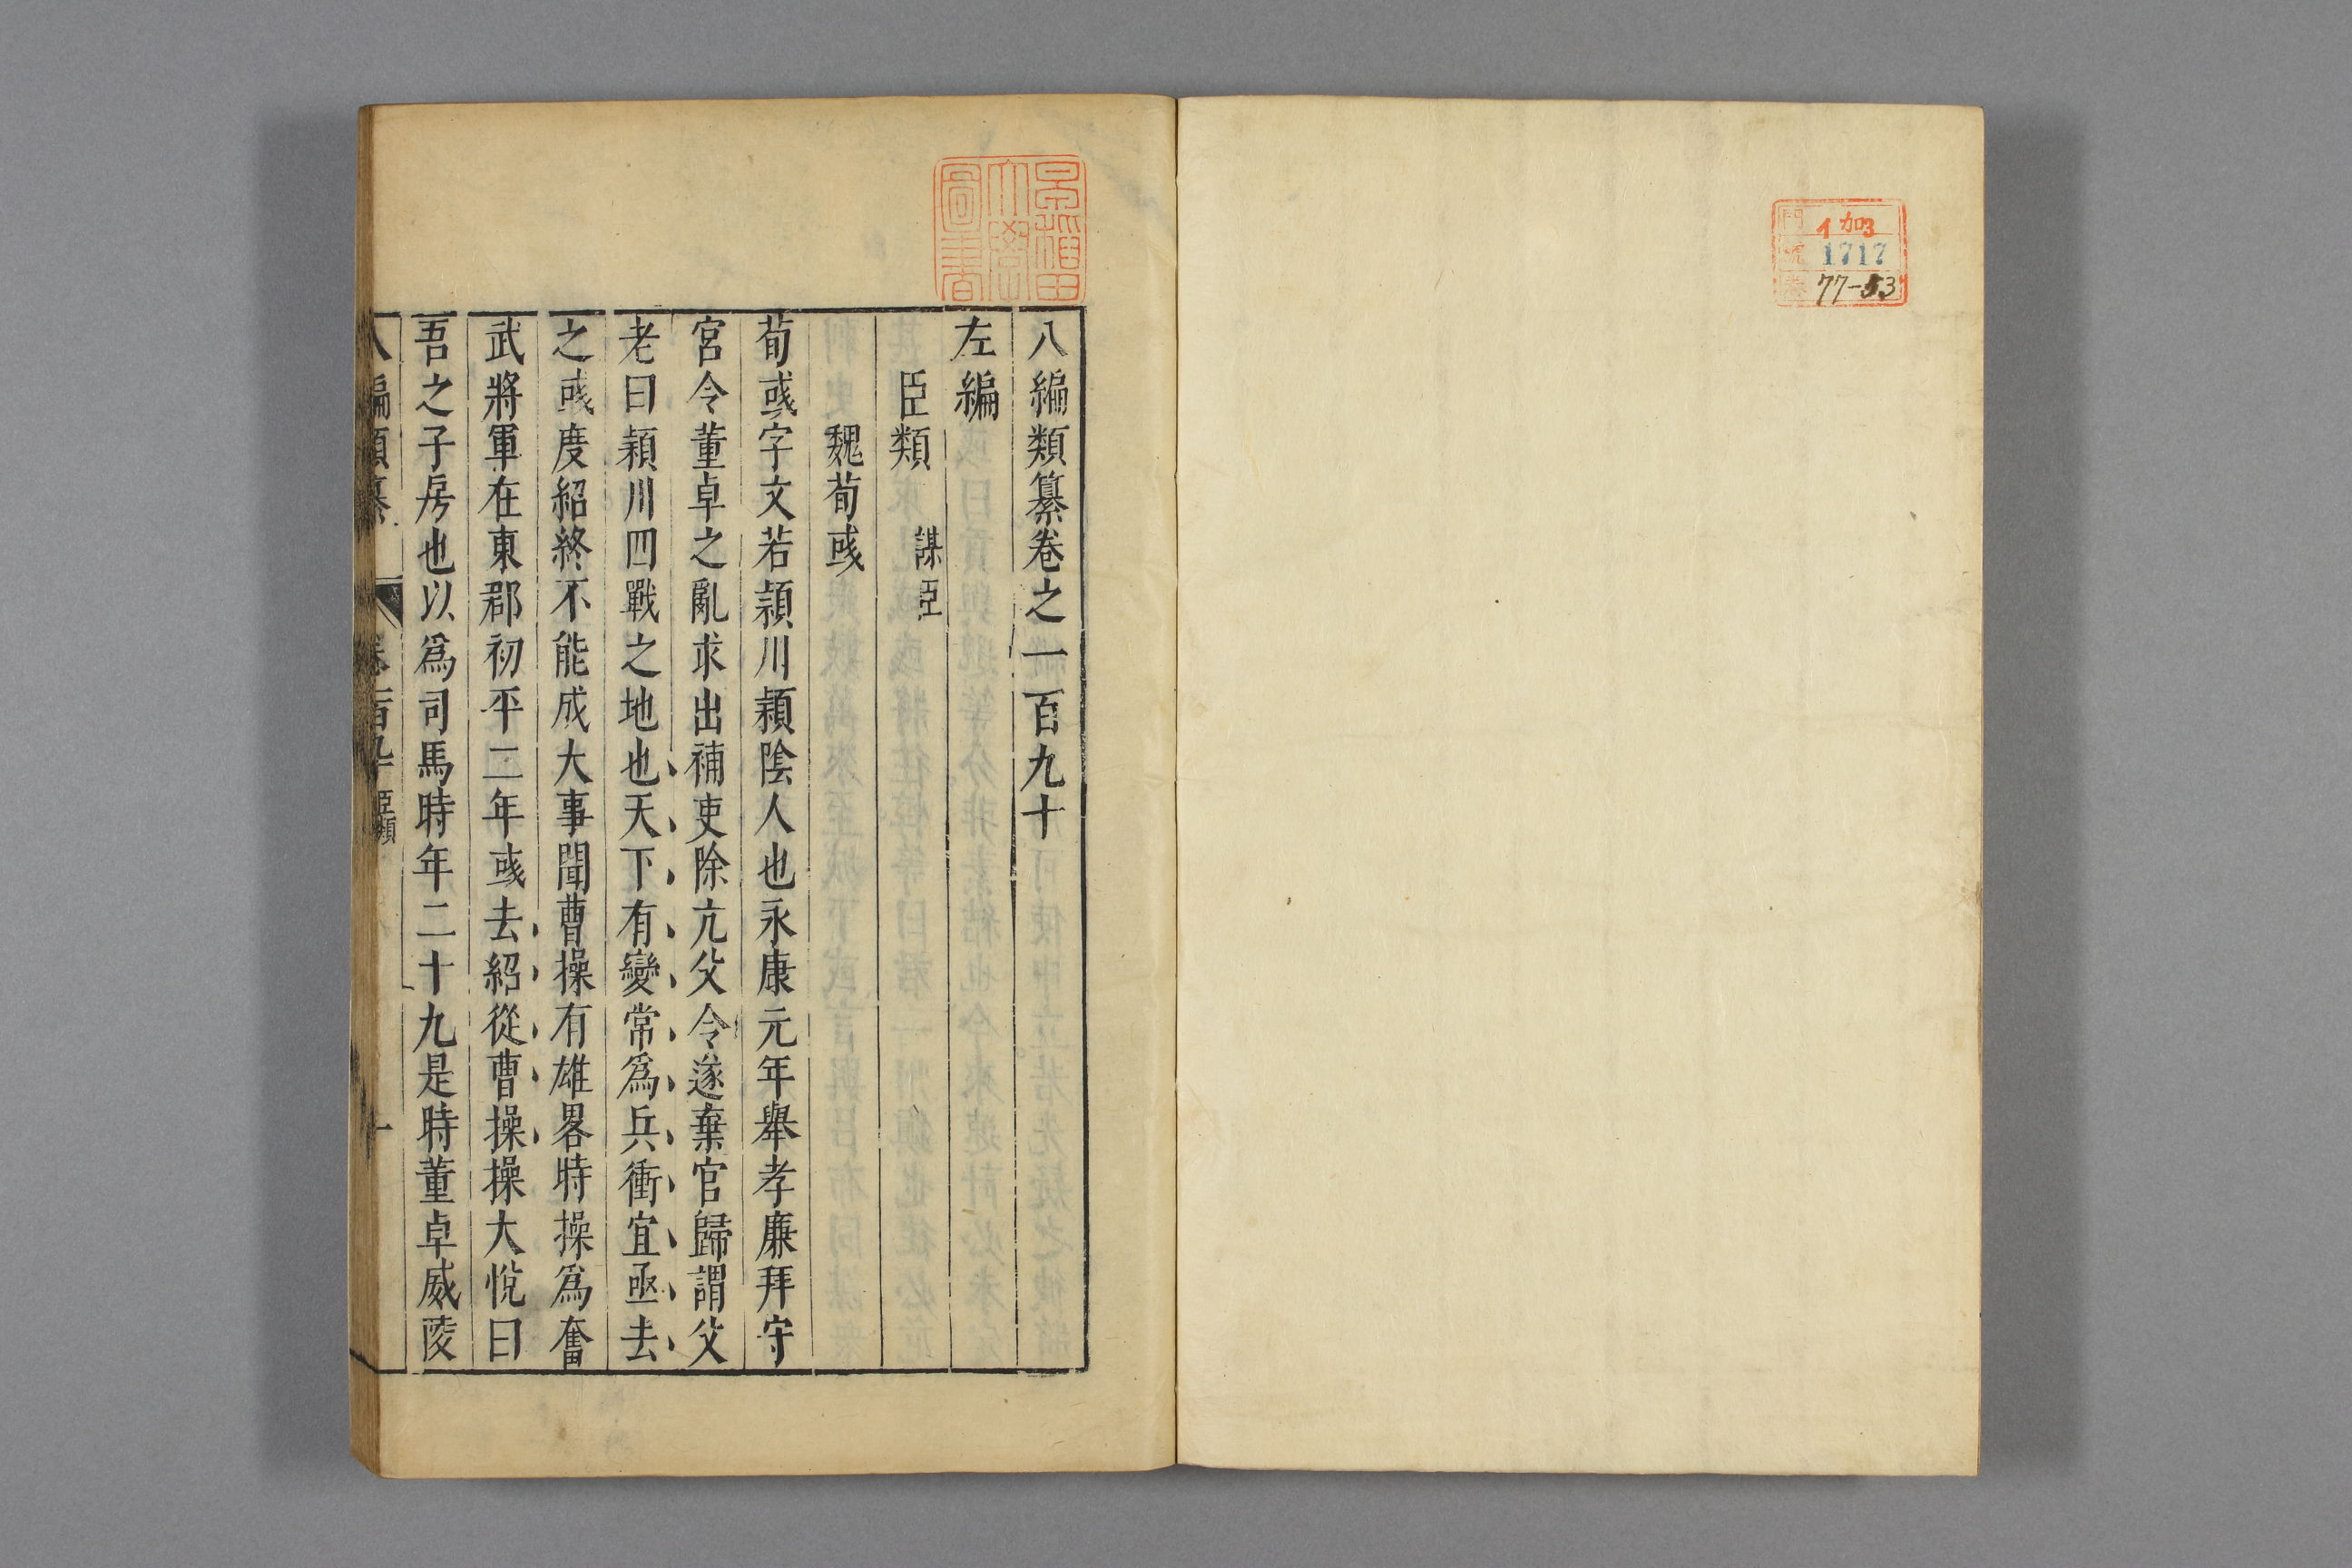 門 イ加3
號 1717
卷 77-53
早稲田大學圖書
八編類纂卷之一百九十
左編
臣類 謀臣
魏荀彧
荀彧字文若潁川潁陰人也永康元年舉孝廉拜守
宮令董卓之亂求出補吏除亢父令遂棄官歸謂父
老曰潁川四戰之地也天下有變常爲兵衝宜亟去
之彧度紹終不能成大事聞曹操有雄畧時操爲奮
武將軍在東郡初平二年彧去紹從曹操操大悅曰
吾之子房也以爲司馬時年二十九是時董卓威陵
八編類纂 卷一百九十 臣類 一